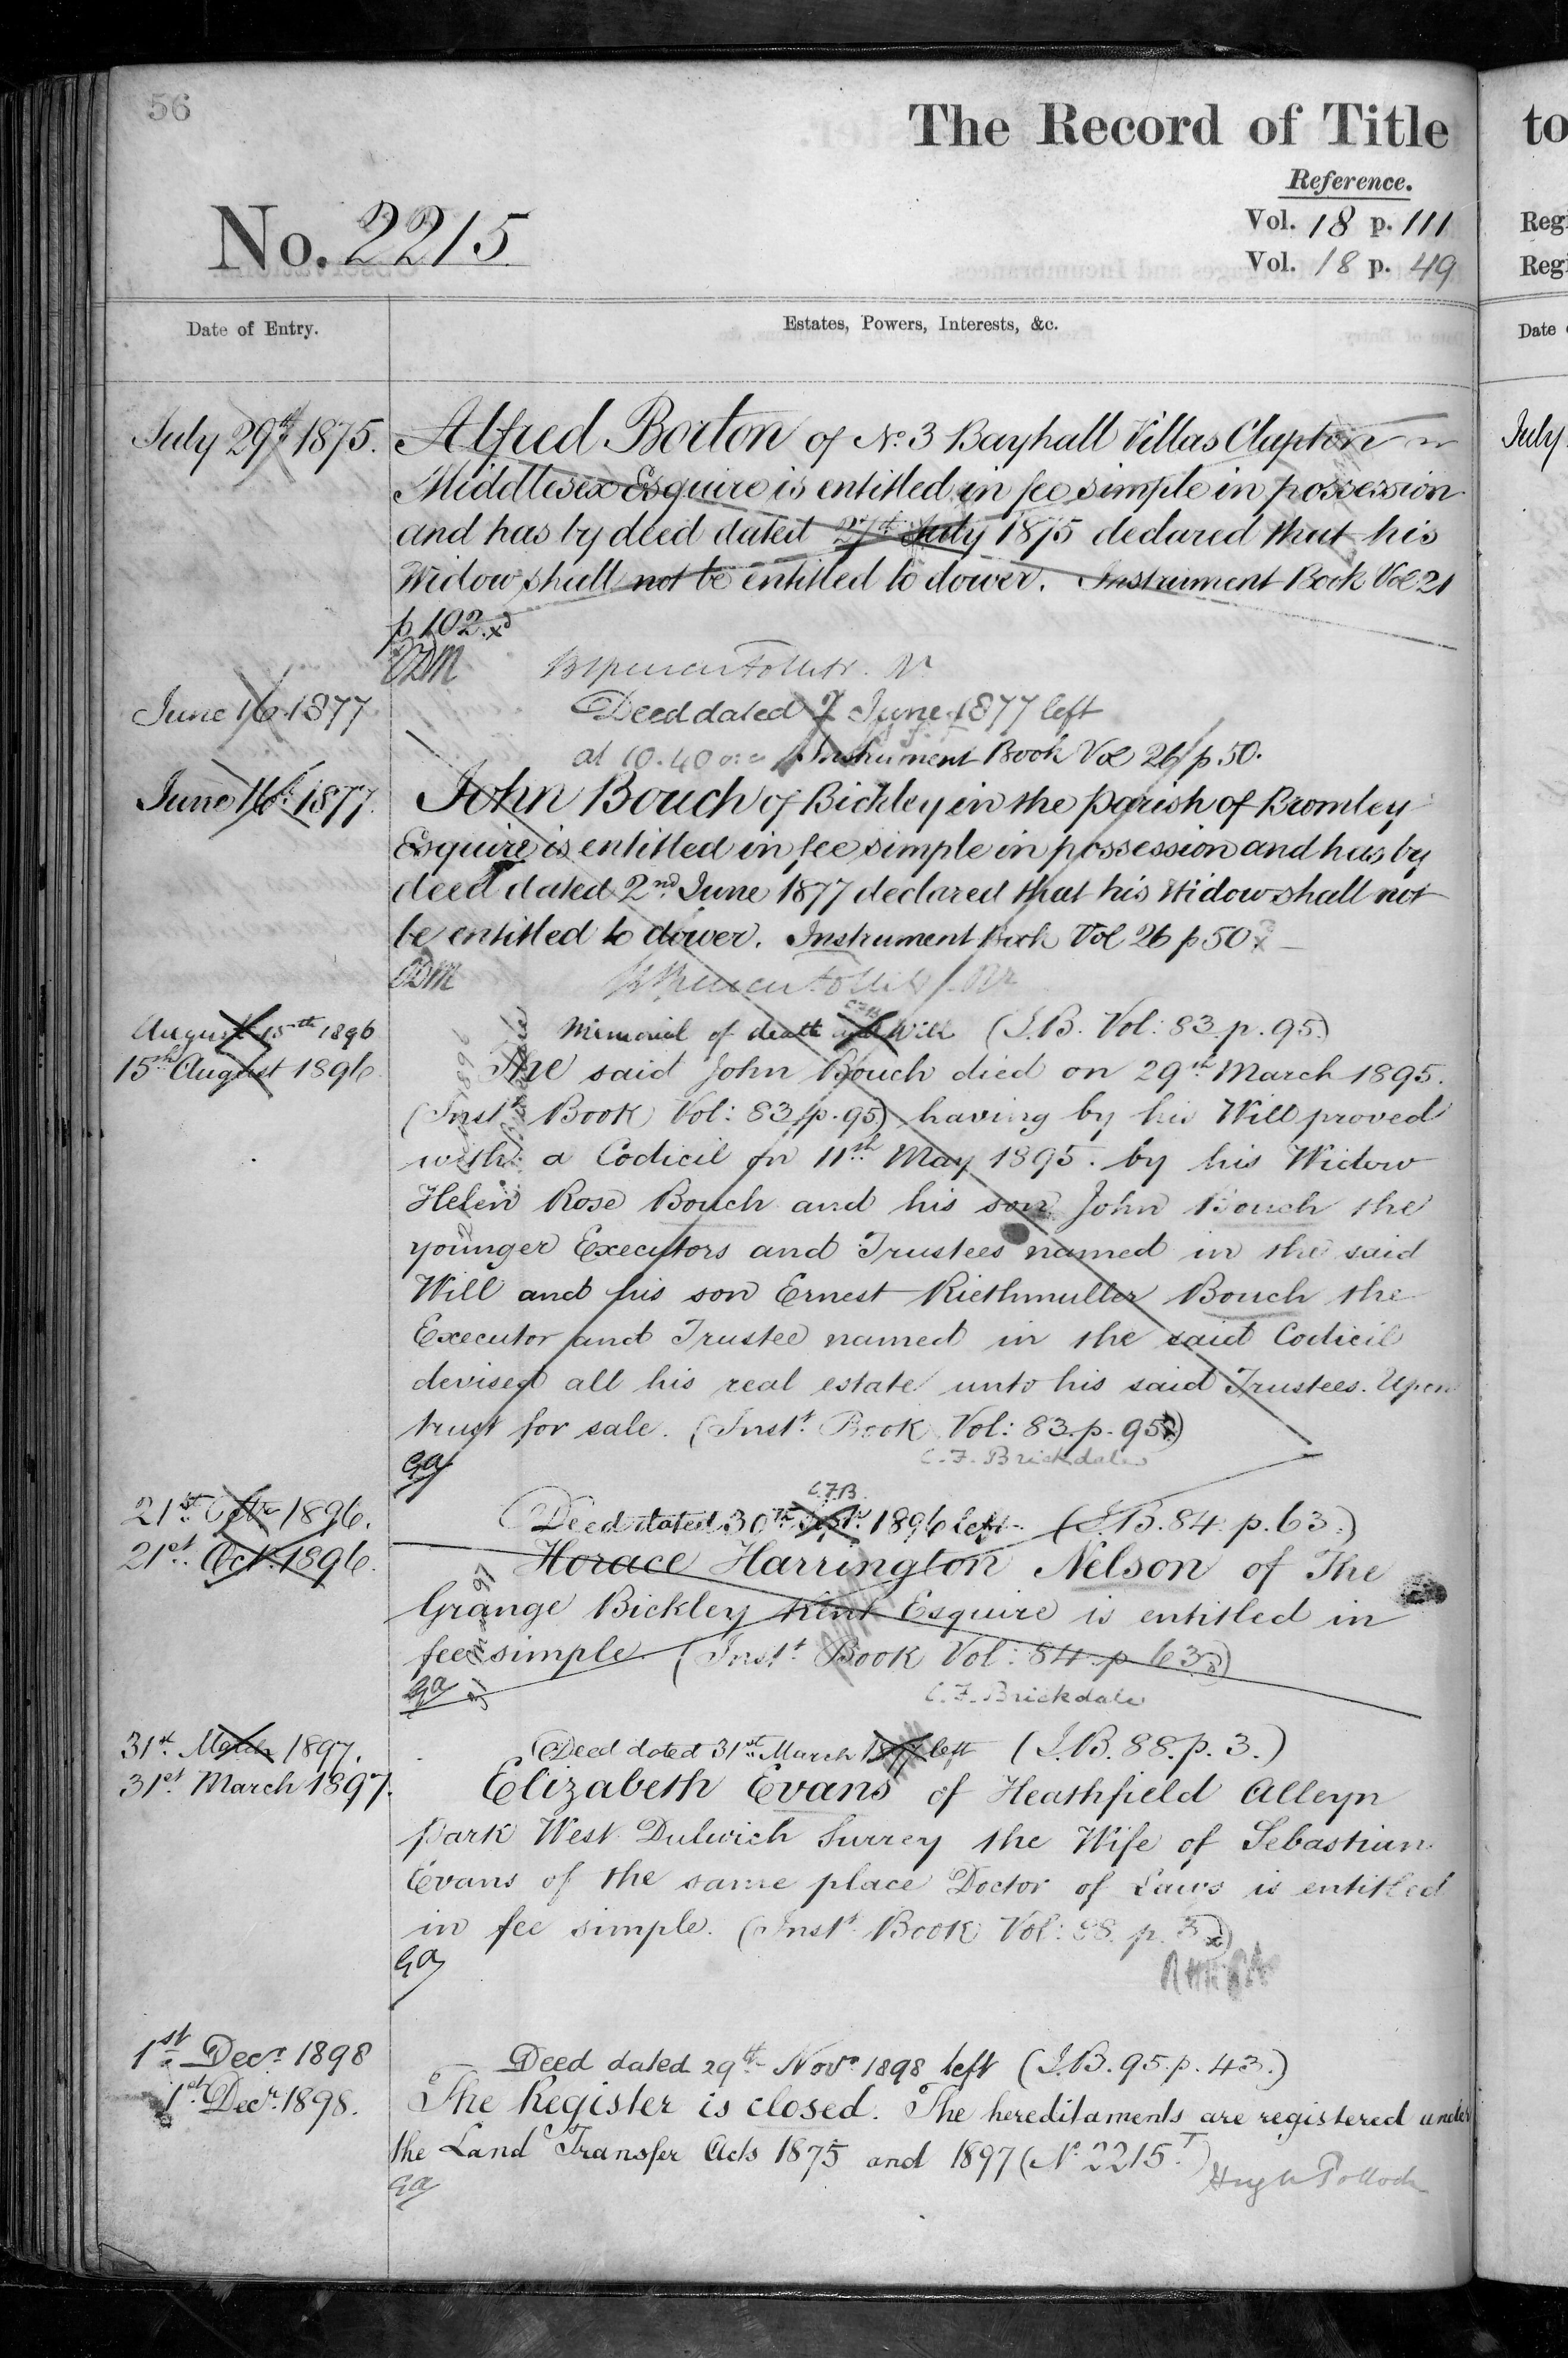 56
The Record of Title
to
Reference.
No. 2215
Vol. 18 p. 111
Reg
Vol. 18 p. 49
Reg
Date of Entry.
Estates, Powers, Interests, &c.
Date
July 29th 1875.
Alfred Borton of No. 3 Bayhall Villas Clapton in
July
Middlesex Esquire is entitled in fee simple in possession
and has by deed dated 27th July 1875 declared that his
Widow shall not be entitled to dower. Instrument Book Vol 21
p 102.
June 16 1877
Deed dated 2 June 1877 left
at 10.40 Instrument Book Vol 26 p. 50.
June 16th 1877.
John Bouch of Bickley in the parish of Bromley
Esquire is entitled in fee simple in possession and has by
deed dated 2nd June 1877 declared that his Widow shall not
be entitled to dower. Instrument Book Vol 26 p 50
August 15th 1896
Memorial of death and Will (I.B. Vol: 83. p. 95.)
15th August 1896.
The said John Bouch died on 29th March 1895.
(Inst. Book Vol: 83. p. 95) having by his Will proved
with a Codicil on 11th May 1895. by his Widow
Helen Rose Bouch and his son John Bouch the
younger Executors and Trustees named in the said
Will and his son Ernest Riethmuller Bouch the
Executor and Trustee named in the said Codicil
devised all his real estate unto his said Trustees. Upon
trust for sale. (Inst. Book Vol: 83. p. 95.)
C. F. Brickdale
C.F.B.
21st Octr 1896.
Deed dated 30th Septr 1896 left (I.B. 84. p. 63.)
21st Oct. 1896.
Horace Harrington Nelson of The
Grange Bickley Kent Esquire is entitled in
fee simple (Inst. Book Vol: 84. p 63.)
C. F. Brickdale
31st March 1897.
Deed dated 31st March 1897 left (I.B. 88. p. 3.)
31st March 1897.
Elizabeth Evans of Heathfield Alleyn
Park West Dulwich Surrey the Wife of Sebastian
Evans of the same place Doctor of Laws is entitled
in fee simple. (Inst. Book Vol: 88. p. 3.)
1st Decr 1898
Deed dated 29th Novr 1898 left (I.B. 95. p. 43.)
1st Decr 1898.
The Register is closed. The hereditaments are registered under
the Land Transfer Acts 1875 and 1897 (No 2215T)
Hugh Pollock